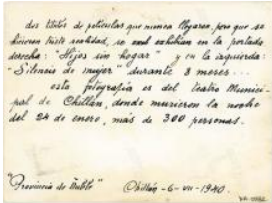 dos titulos de peliculas que nunca llegaron, pero que se
hicieron triste realidad, se exhibian en la portada
derecha: "Hijos sin hogar" y en la izquierda:
"Silencio de mujer" durante 8 meses...
esta fotografia es del Teatro Munici-
pal de Chillán, donde murieron la noche
del 24 de enero, más de 300 personas.
"Provincia de Ñuble" Chillán -6-VII-1940.